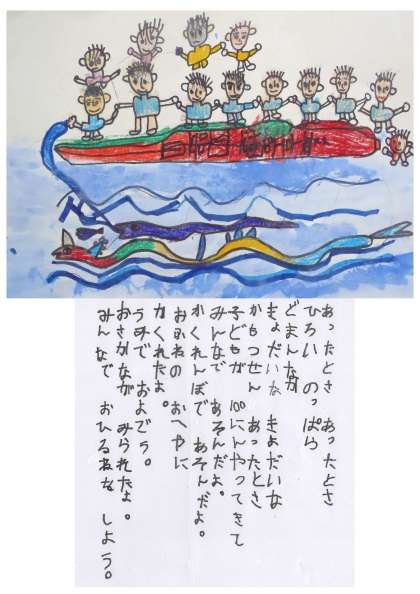 あったとさ あったとさ
ひろい のっぱら
どまんなか
きょだいな きょだいな
かもつせん あったとさ
子どもが 100にんやってきて
みんなで あそんだよ。
かくれんぼで あそんだよ。
おふねの おへやに
かくれたよ。
うみで およごう。
おさかなが みられたよ。
みんなで おひるねを しよう。